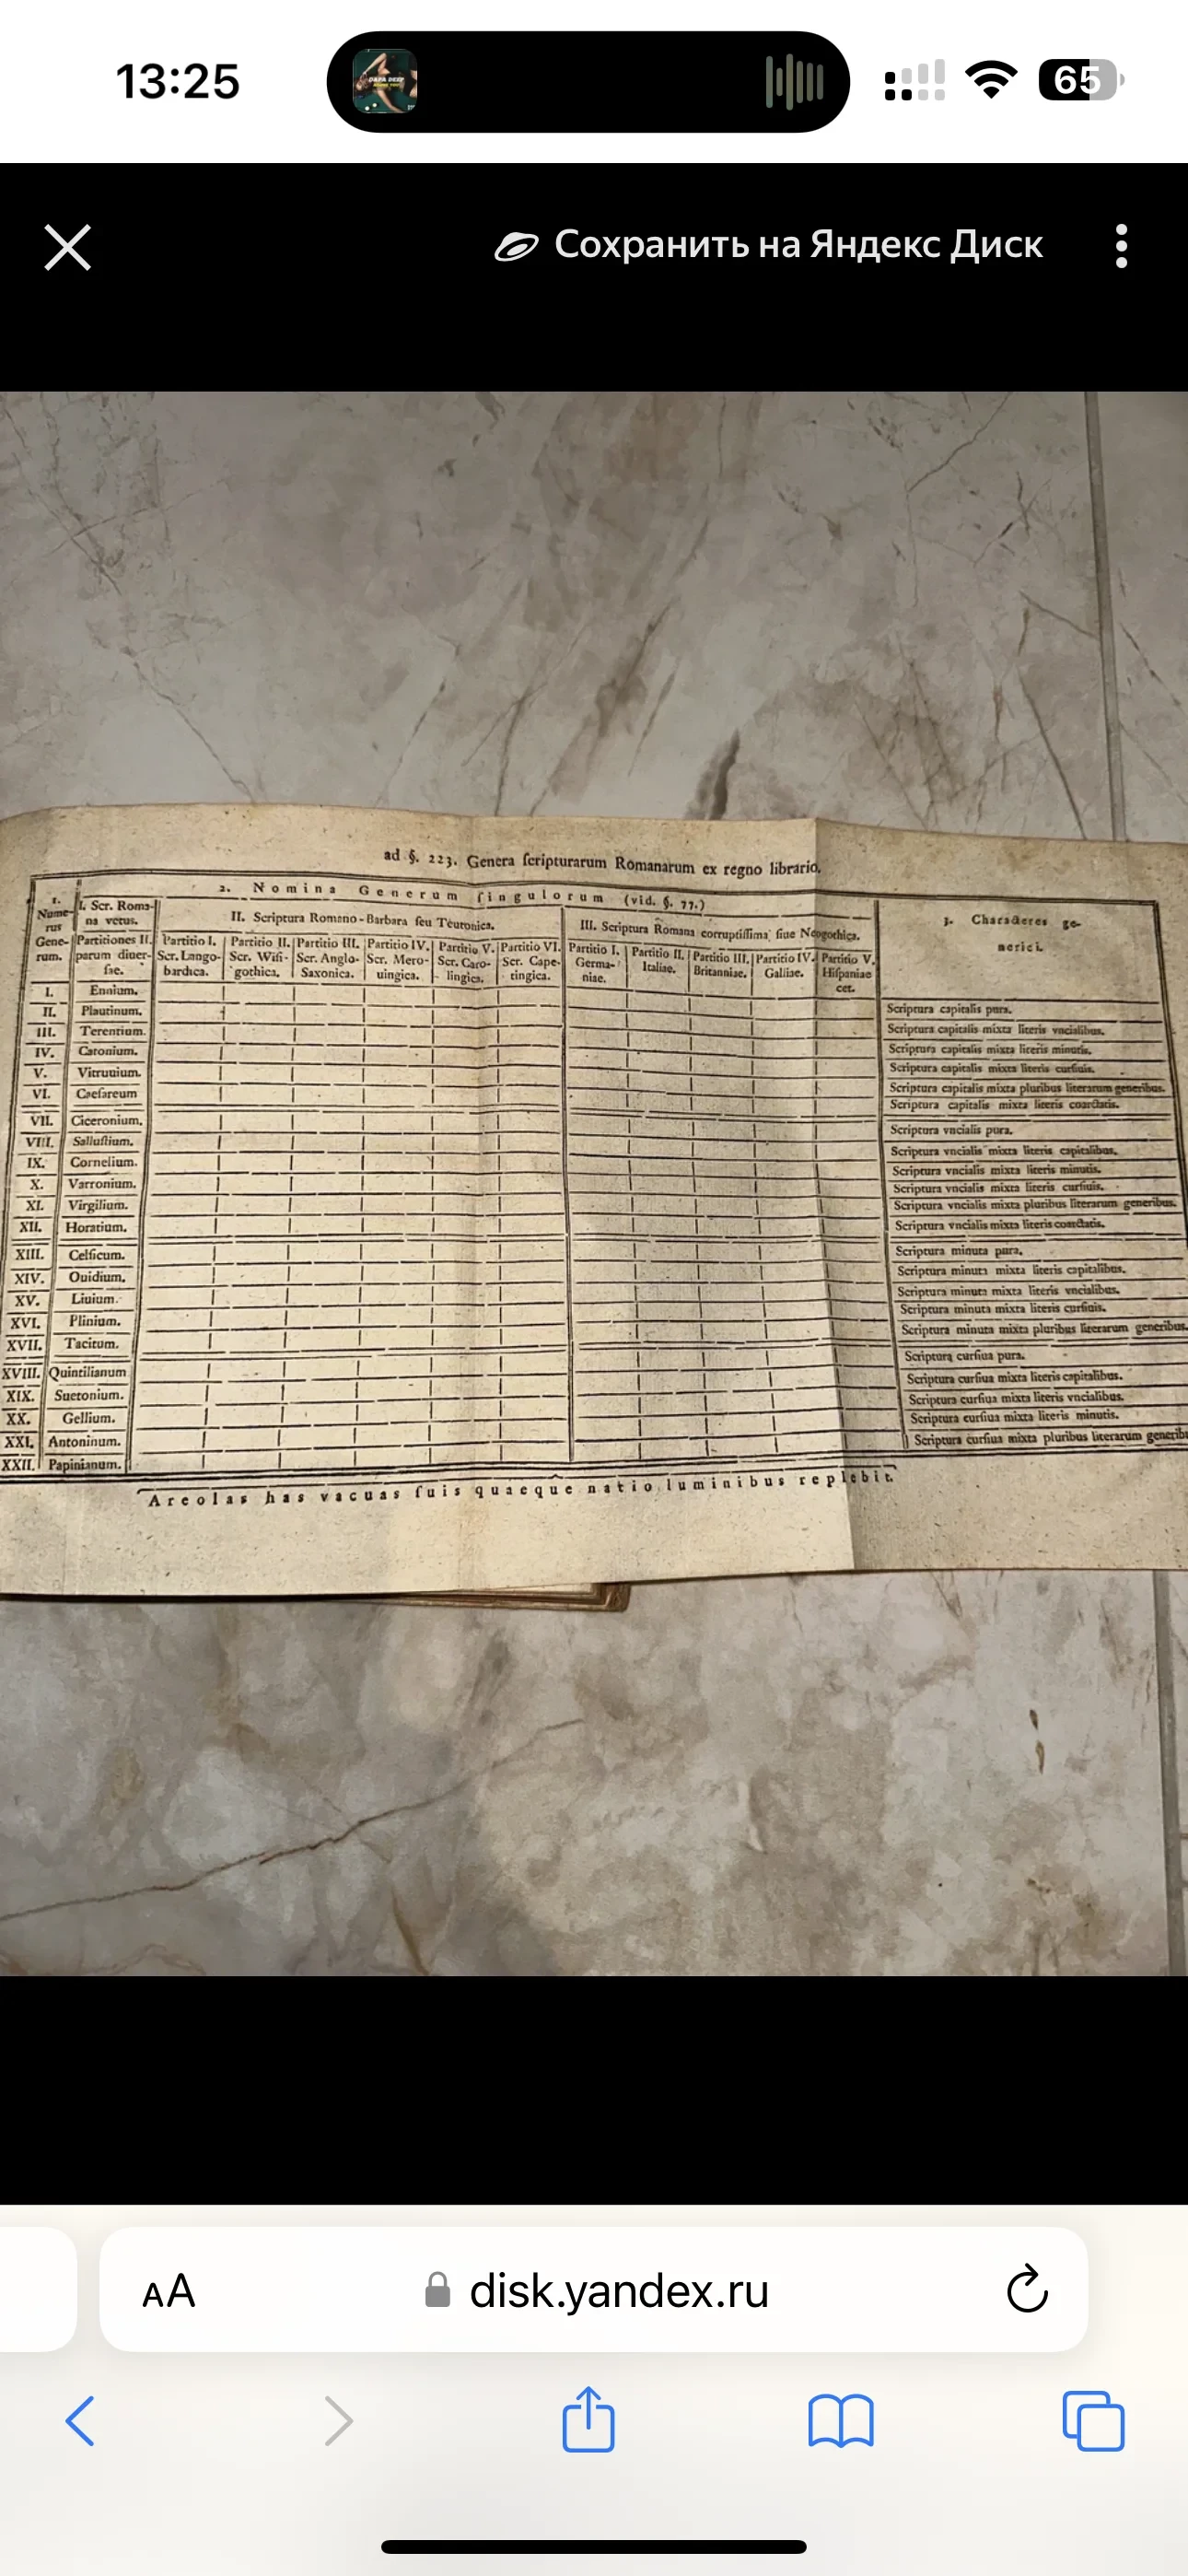 13:25
65
Сохранить на Яндекс Диск
ad §. 223. Genera ſcripturarum Romanarum ex regno librario.
2. Nomina Generum ſingulorum (vid. §. 77.)
1. Nume-
rus
Gene-
rum.
I. Scr. Roma-
na vetus.
Partitiones II.
parum diuer-
ſae.
II. Scriptura Romano-Barbara ſeu Teutonica.
Partitio I.
Scr. Lango-
bardica.
Partitio II.
Scr. Wiſi-
gothica.
Partitio III.
Scr. Anglo-
Saxonica.
Partitio IV.
Scr. Mero-
uingica.
Partitio V.
Scr. Caro-
lingica.
Partitio VI.
Scr. Cape-
tingica.
III. Scriptura Romana corruptiſſima ſiue Neogothica.
Partitio I.
Germa-
niae.
Partitio II.
Italiae.
Partitio III.
Britanniae.
Partitio IV.
Galliae.
Partitio V.
Hiſpaniae
cet.
3. Characteres ge-
nerici.
I. Ennium. Scriptura capitalis pura.
II. Plautinum. Scriptura capitalis mixta literis vncialibus.
III. Terentium. Scriptura capitalis mixta literis minutis.
IV. Catonium. Scriptura capitalis mixta literis curſiuis.
V. Vitruuium. Scriptura capitalis mixta pluribus literarum generibus.
VI. Caeſareum Scriptura capitalis mixta literis coarctatis.
VII. Ciceronium. Scriptura vncialis pura.
VIII. Salluſtium. Scriptura vncialis mixta literis capitalibus.
IX. Cornelium. Scriptura vncialis mixta literis minutis.
X. Varronium. Scriptura vncialis mixta literis curſiuis.
XI. Virgilium. Scriptura vncialis mixta pluribus literarum generibus.
XII. Horatium. Scriptura vncialis mixta literis coarctatis.
XIII. Celſicum. Scriptura minuta pura.
XIV. Ouidium. Scriptura minuta mixta literis capitalibus.
XV. Liuium. Scriptura minuta mixta literis vncialibus.
XVI. Plinium. Scriptura minuta mixta literis curſiuis.
XVII. Tacitum. Scriptura minuta mixta pluribus literarum generibus.
XVIII. Quintilianum Scriptura curſiua pura.
XIX. Suetonium. Scriptura curſiua mixta literis capitalibus.
XX. Gellium. Scriptura curſiua mixta literis vncialibus.
XXI. Antoninum. Scriptura curſiua mixta literis minutis.
XXII. Papinianum. Scriptura curſiua mixta pluribus literarum generibu
Areolas has vacuas ſuis quaeque natio luminibus replebit.
AA
disk.yandex.ru